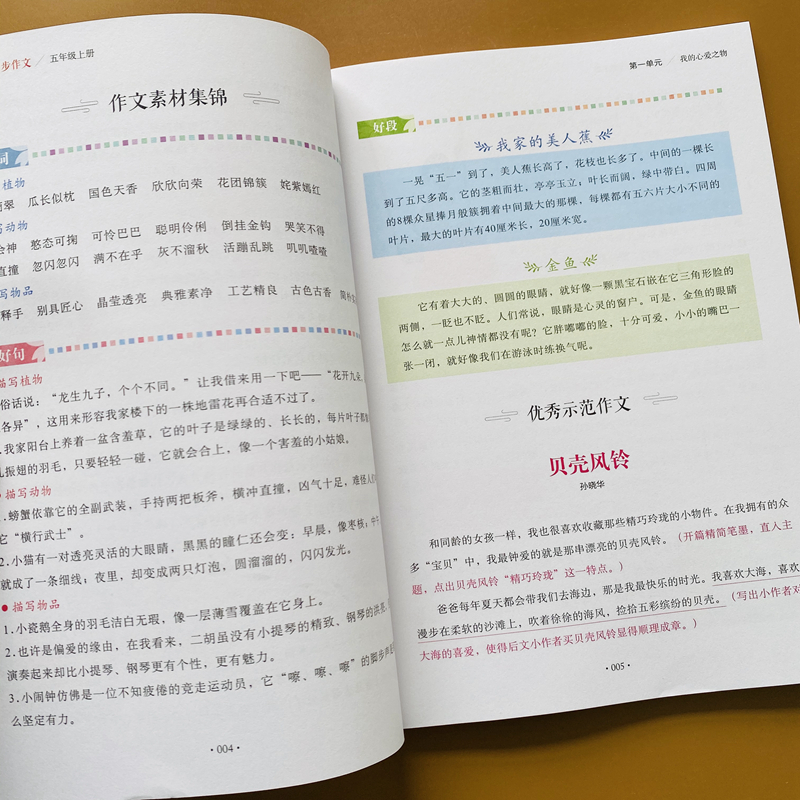 步作文 / 五年级上册
作文素材集锦
词
植物
翠 瓜长似枕 国色天香 欣欣向荣 花团锦簇 姹紫嫣红
写动物
会神 憨态可掬 可怜巴巴 聪明伶俐 倒挂金钩 哭笑不得
直撞 忽闪忽闪 满不在乎 灰不溜秋 活蹦乱跳 叽叽喳喳
写物品
释手 别具匠心 晶莹透亮 典雅素净 工艺精良 古色古香 简朴
好句
描写植物
俗话说：“龙生九子，个个不同。”让我借来用一下吧——“花开九朵，
各异”，这用来形容我家楼下的一株地雷花再合适不过了。
.我家阳台上养着一盆含羞草，它的叶子是绿绿的、长长的，每片叶子都
振翅的羽毛，只要轻轻一碰，它就会合上，像一个害羞的小姑娘。
描写动物
1.螃蟹依靠它的全副武装，手持两把板斧，横冲直撞，凶气十足，难怪人
它“横行武士”。
2.小猫有一对透亮灵活的大眼睛，黑黑的瞳仁还会变：早晨，像枣核；中午
就成了一条细线；夜里，却变成两只灯泡，圆溜溜的，闪闪发光。
● 描写物品
1.小瓷鹅全身的羽毛洁白无瑕，像一层薄雪覆盖在它身上。
2.也许是偏爱的缘由，在我看来，二胡虽没有小提琴的精致、钢琴的洪亮，
演奏起来却比小提琴、钢琴更有个性，更有魅力。
3.小闹钟仿佛是一位不知疲倦的竞走运动员，它“嚓、嚓、嚓”的脚步声
么坚定有力。
· 004 ·
第一单元 / 我的心爱之物
好段
我家的美人蕉
一晃“五一”到了，美人蕉长高了，花枝也长多了。中间的一棵长
到了五尺多高。它的茎粗而壮，亭亭玉立；叶长而阔，绿中带白。四周
的8棵众星捧月般簇拥着中间最大的那棵，每棵都有五六片大小不同的
叶片，最大的叶片有40厘米长，20厘米宽。
金鱼
它有着大大的、圆圆的眼睛，就好像一颗黑宝石嵌在它三角形脸的
两侧，一眨也不眨。人们常说，眼睛是心灵的窗户。可是，金鱼的眼睛
怎么就一点儿神情都没有呢？它胖嘟嘟的脸，十分可爱，小小的嘴巴一
张一闭，就好像我们在游泳时练换气呢。
优秀示范作文
贝壳风铃
孙晓华
和同龄的女孩一样，我也很喜欢收藏那些精巧玲珑的小物件。在我拥有的众
多“宝贝”中，我最钟爱的就是那串漂亮的贝壳风铃。（开篇精简笔墨，直入主
题，点出贝壳风铃“精巧玲珑”这一特点。）
爸爸每年夏天都会带我们去海边，那是我最快乐的时光。我喜欢大海，喜欢
漫步在柔软的沙滩上，吹着徐徐的海风，捡拾五彩缤纷的贝壳。（写出小作者对
大海的喜爱，使得后文小作者买贝壳风铃显得顺理成章。）
· 005 ·